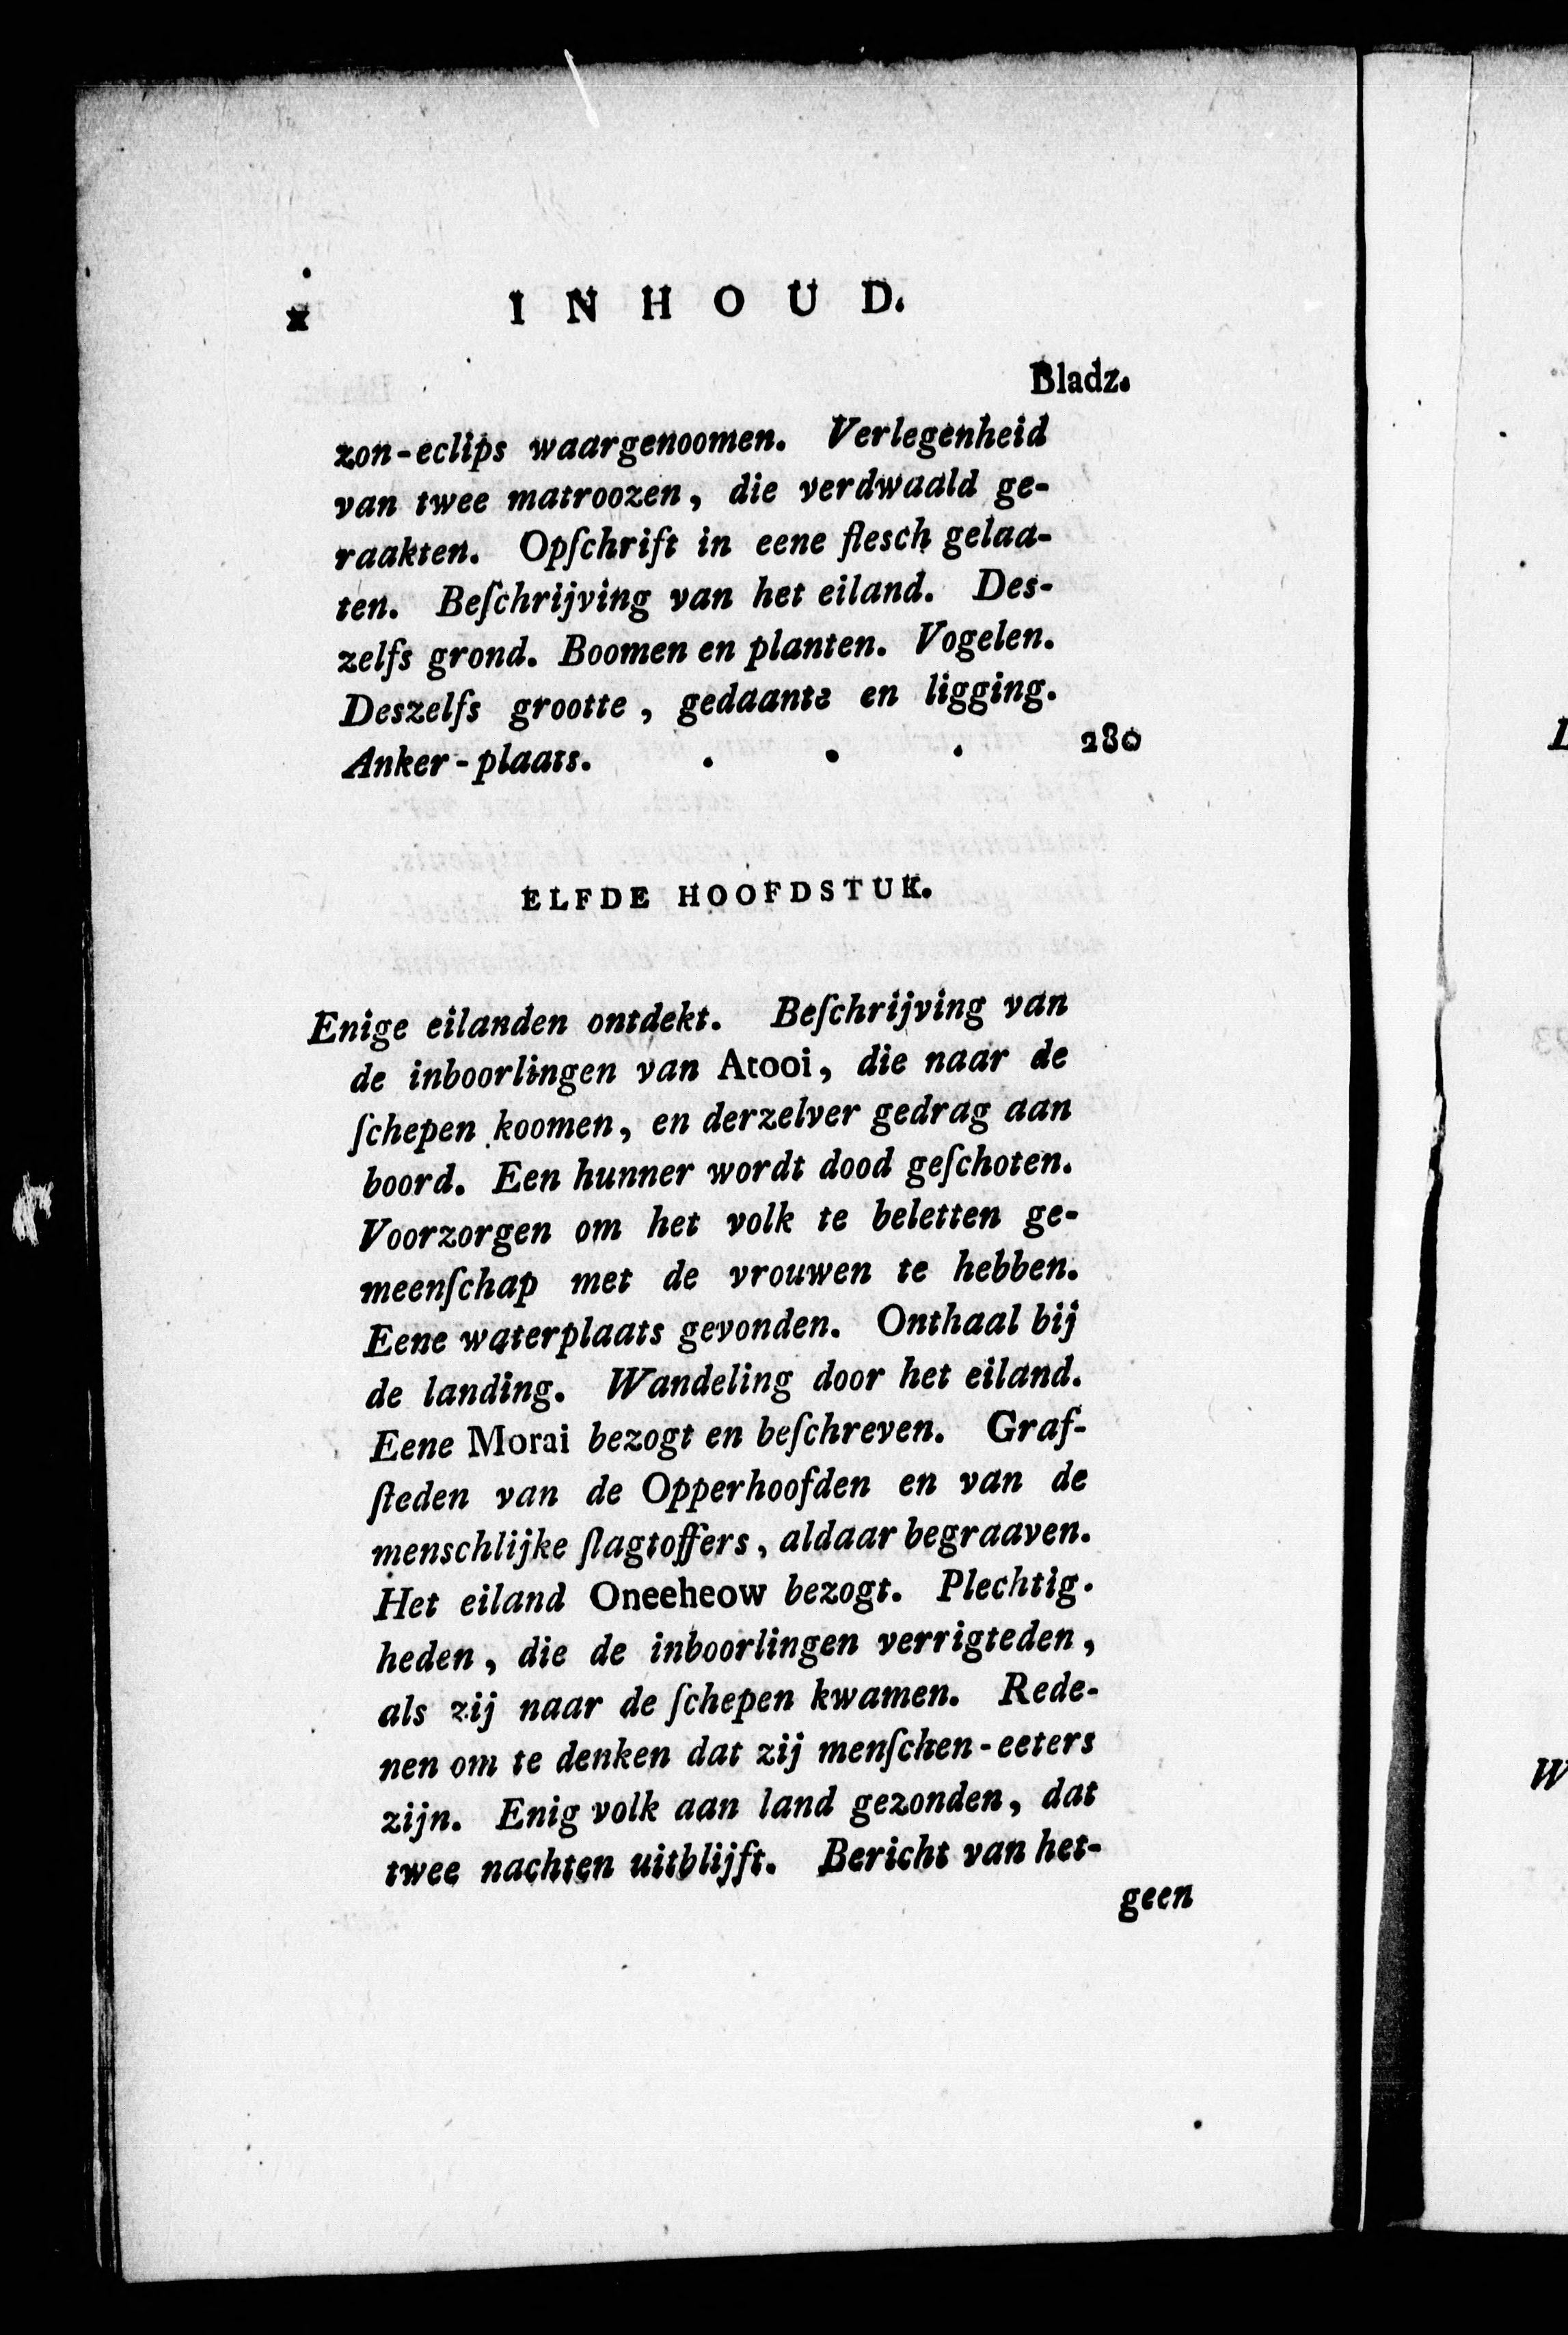 x INHOUD.
Bladz.
zon-eclips waargenoomen. Verlegenheid
van twee matroozen, die verdwaald ge-
raakten. Opſchrift in eene flesch gelaa-
ten. Beſchrijving van het eiland. Des-
zelfs grond. Boomen en planten. Vogelen.
Deszelfs grootte, gedaante en ligging.
Anker-plaats. . . . 280
ELFDE HOOFDSTUK.
Enige eilanden ontdekt. Beſchrijving van
de inboorlingen van Atooi, die naar de
ſchepen koomen, en derzelver gedrag aan
boord. Een hunner wordt dood geſchoten.
Voorzorgen om het volk te beletten ge-
meenſchap met de vrouwen te hebben.
Eene waterplaats gevonden. Onthaal bij
de landing. Wandeling door het eiland.
Eene Morai bezogt en beſchreven. Graf-
ſteden van de Opperhoofden en van de
menschlijke ſlagtoffers, aldaar begraaven.
Het eiland Oneeheow bezogt. Plechtig-
heden, die de inboorlingen verrigteden,
als zij naar de ſchepen kwamen. Rede-
nen om te denken dat zij menſchen-eeters
zijn. Enig volk aan land gezonden, dat
twee nachten uitblijft. Bericht van het-
geen
W